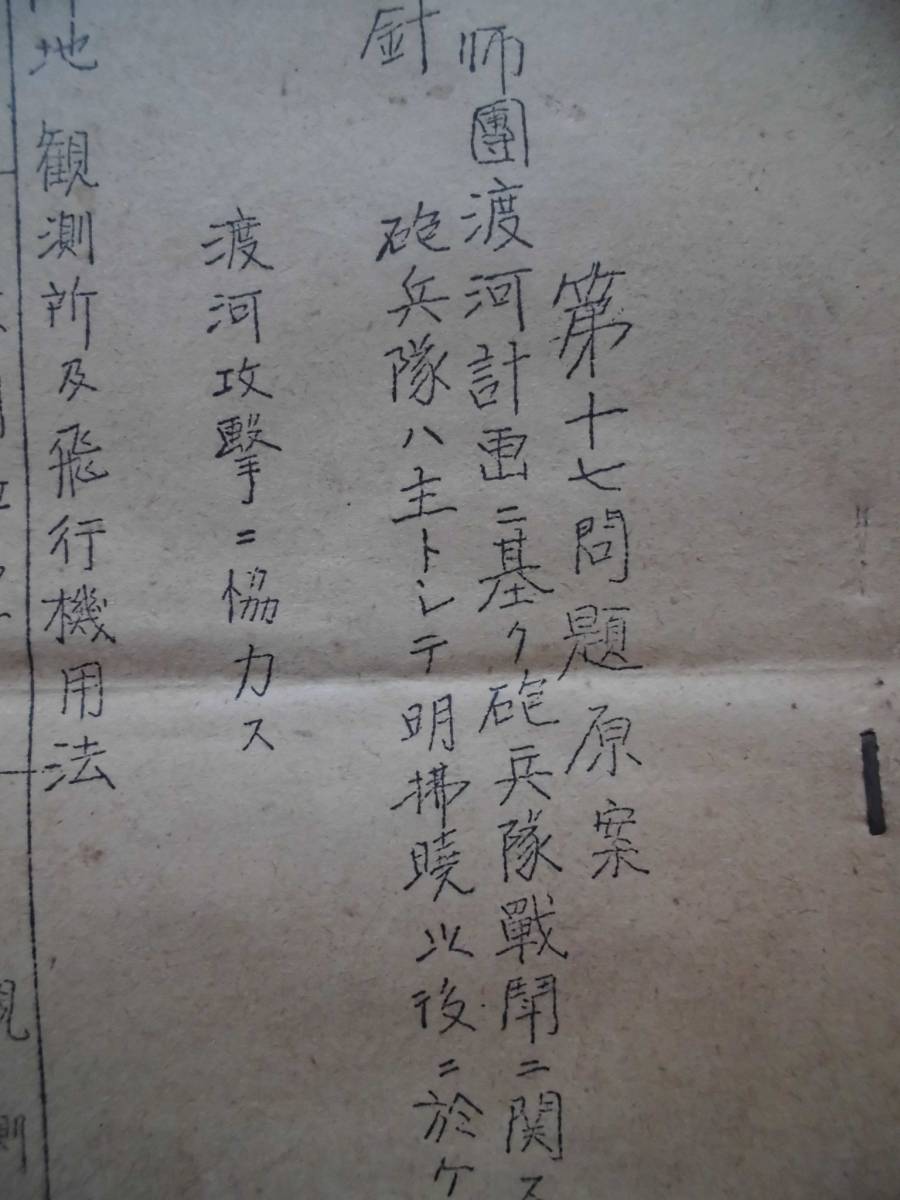 第十七問題原案
师團渡河計画ニ基ク砲兵隊戰鬪ニ関ス
針
砲兵隊ハ主トシテ明拂曉以後ニ於ケ
渡河攻撃ニ協力ス
地 観測所及飛行機用法
観測